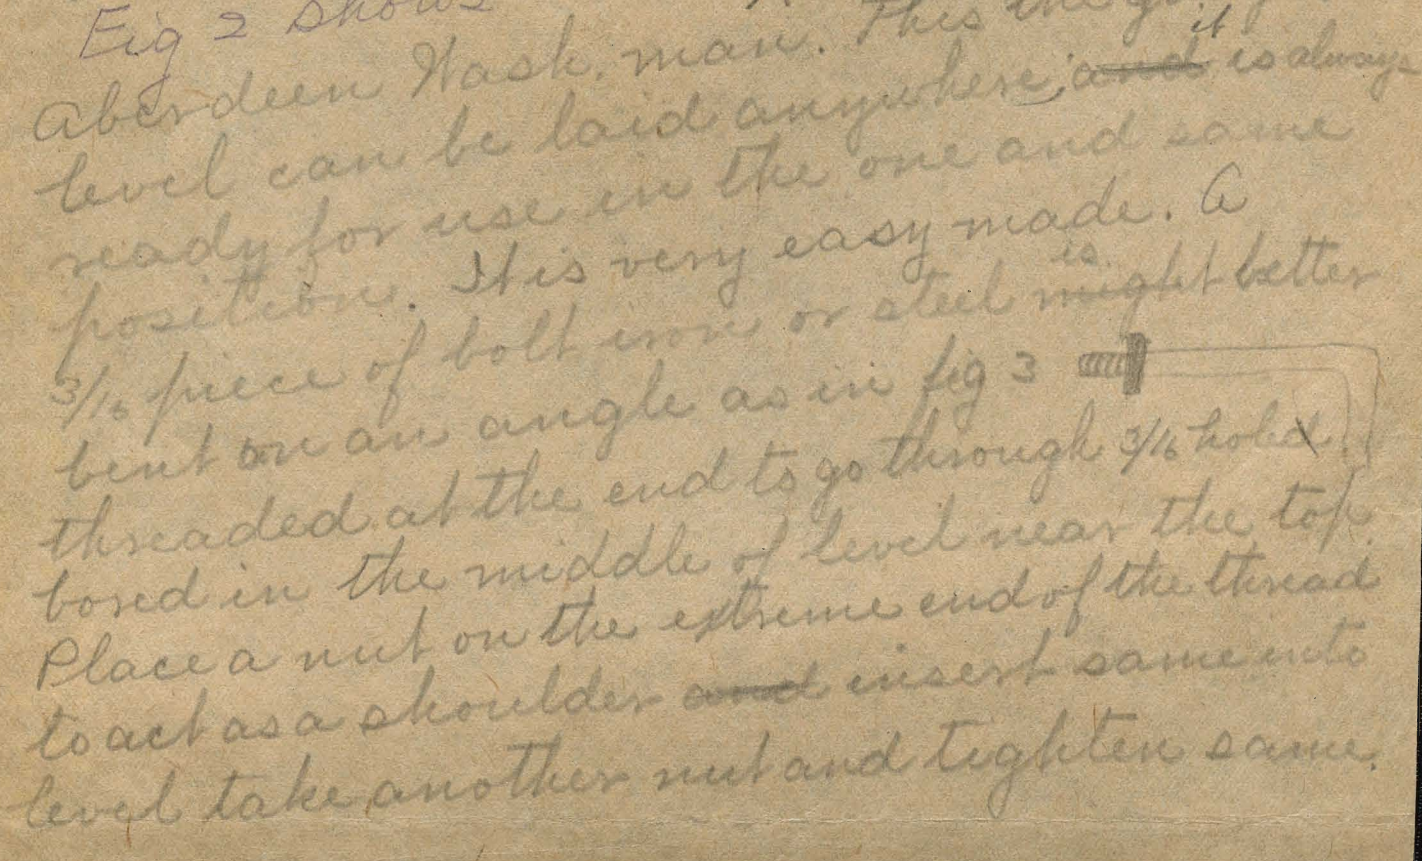 Fig 2 shows
Aberdeen Wash. man. This the
level can be laid anywhere, and it is always
ready for use in the one and same
position. It is very easy made. A
3/16 piece of bolt iron or steel might is better
bent on an angle as in fig 3
threaded at the end to go through 3/16 holed
bored in the middle of level near the top.
Place a nut on the extreme end of the thread
to act as a shoulder and insert same into
level take another nut and tighten same.